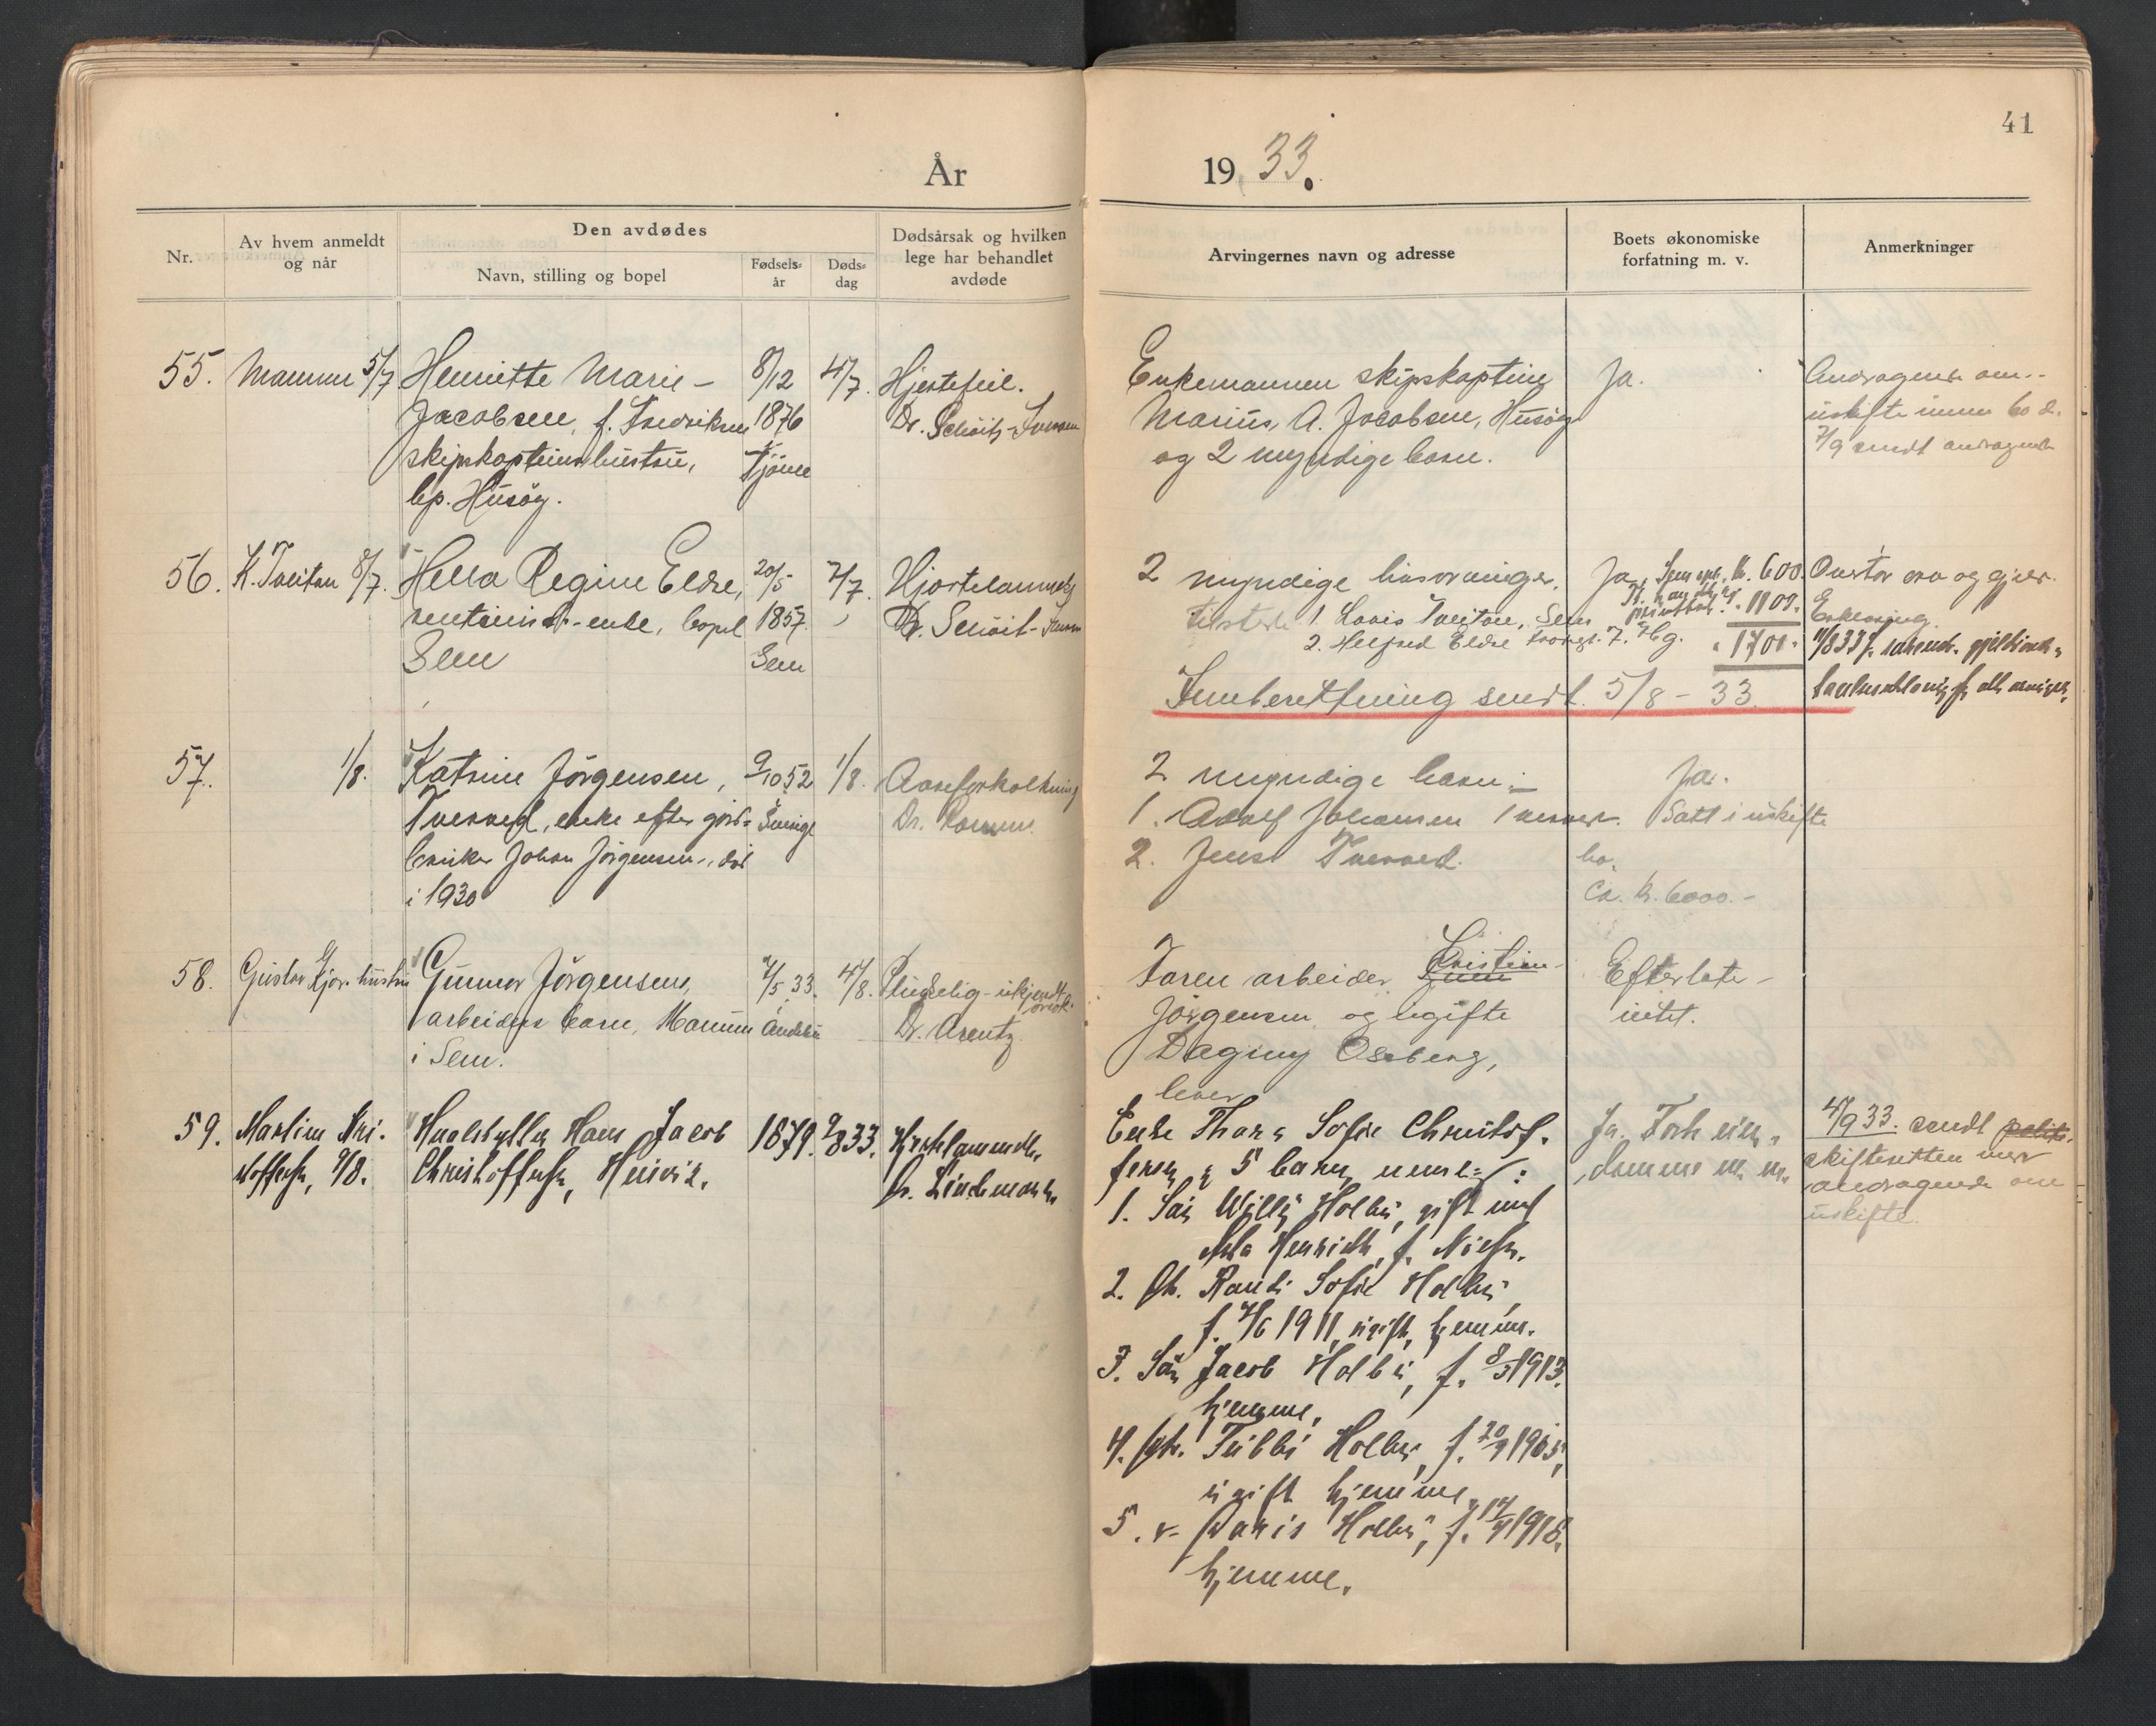 41
År 19 33.
Nr.
Av hvem anmeldt
og når
Den avdødes
Navn, stilling og bopel
Fødsels-
år
Døds-
dag
Dødsårsak og hvilken
lege har behandlet
avdøde
Arvingernes navn og adresse
Boets økonomiske
forfatning m. v.
Anmerkninger
55. Mannen 5/7
Henriette Marie
Jacobsen, f. Fredriksen
skipskapteinshustru,
bp. Husöy.
8/12
1876
Tjöme
4/7.
Hjertefeil.
Dr. Schöitz-
Enkemannen skipskaptein
Marius A. Jacobsen, Husöy
og 2 myndige barn.
Ja.
Andragende om
uskifte innen 60 d.
7/9 sendt andragende
56. K. Tveitan 8/7.
Regine Eldre,
enke, bopel
Sem
20/5
1857
Sem
7/7.
Hjertelammelse
Dr. Schöit-
2 myndige livsarvinger.
1. Lovis Tveitan, Sem
2. Eldre 7. Hbg.
Ja, kr. 600
1100.
1700.
Innberetning sendt. 5/8 - 33.
Overtar arv og gjeld.
11/8 33
57. 1/8.
Katrine Jörgensen,
Tverved, enke efter gård-
bruker Johan Jörgensen, död
i 1930
9/10 52
Sverige
1/8.
Aareforkalkning
Dr.
2 myndige barn:
1. Adolf Johansen
2. Jens Tverved.
Ja.
Satt i uskifte
bo.
Ca. kr. 6000.-
58. Gustav
Gunnar Jörgensen,
arbeiders barn,
i Sem.
7/5 33.
Andebu
4/8.
Pludselig - ukjendt
årsak.
Dr. Arentz.
Faren arbeider Kristian
Jörgensen og ugifte
Dagny Oseberg,
lever
Efterlater
intet.
59. Martin Kri-
stoffersen, 9/8.
Hvalskytter Hans Jacob
Christoffersen, Husvik.
1879.
9/8 33.
Hjertelammelse.
Dr. Lindemark
Enke Thora Sofie Christof-
fersen og 5 barn, neml:
1. Sön Willy Holby, gift med
Henriette, f. Nilsen.
2. Dtr. Randi Sofie Holby,
f. 7/6 1911, ugift, hjemme.
3. Sön Jacob Holby, f. 8/3 1913,
hjemme.
4. dtr. Holby, f. 20/9 1905,
ugift hjemme.
5. Doris Holby, f. 1918,
hjemme.
Ja. Fast eien-
domme m. m.
4/9 33. sendt
skifteretten
andragende om
uskifte.